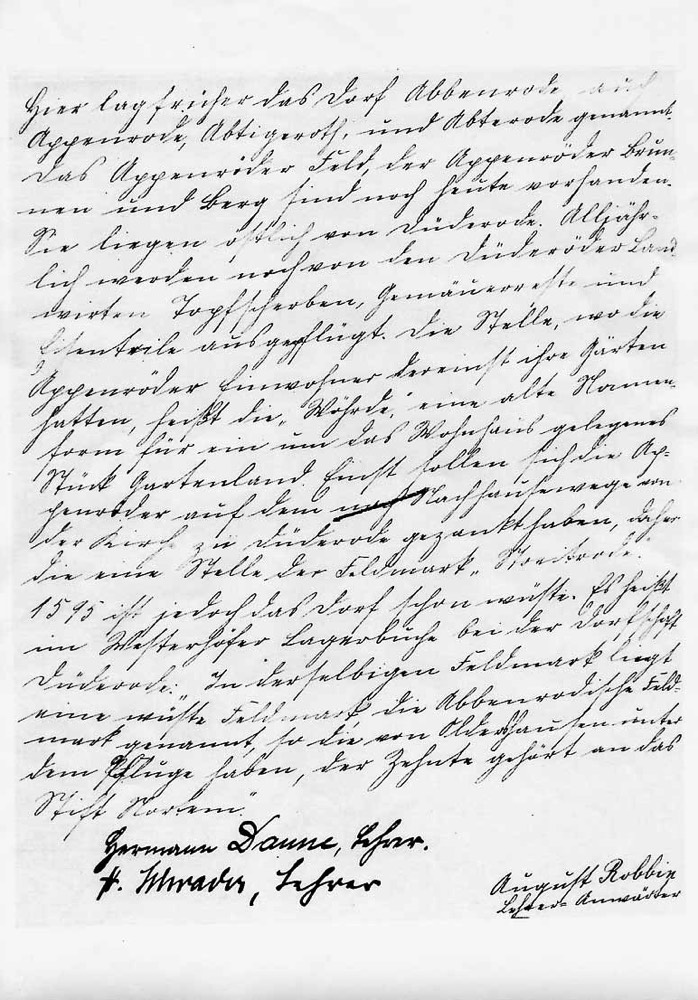 Hier lag früher das Dorf Abbenrode, auch
Appenrode, Abtigeroth, und Abterode genannt.
Das Appenröder Feld, der Appenröder Brun-
nen und Berg sind noch heute vorhanden.
Sie liegen östlich von Düderode. Alljähr-
lich werden noch von den Düderöder Land-
wirten Topfscherben, Gemäuerreste und
Eisenteile ausgepflügt. Die Stelle, wo die
Appenröder Einwohner dereinst ihre Gärten
hatten, heißt die „Wöhrde“, eine alte Namen-
form für ein um das Wohnhaus gelegenes
Stück Gartenland. Einst sollen sich die Ap-
penröder auf dem Nachhausewege von
der Kirche zu Düderode gezankt haben, daher
die eine Stelle der Feldmark „Streitrode“.
1595 ist jedoch das Dorf schon wüste. Es heißt
im Westerhofer Lagerbuche bei der Dorfschaft
Düderode: „In derselbigen Feldmark liegt
eine wüste Feldmark, die Abbenrodische Feld-
mark genannt, so die von Oldershausen unter
dem Pfluge haben, der Zehnte gehört an das
Stift Nortem“.
Hermann Danne, Lehrer.
H. , Lehrer
August Robbin
Lehrer-Anwärter